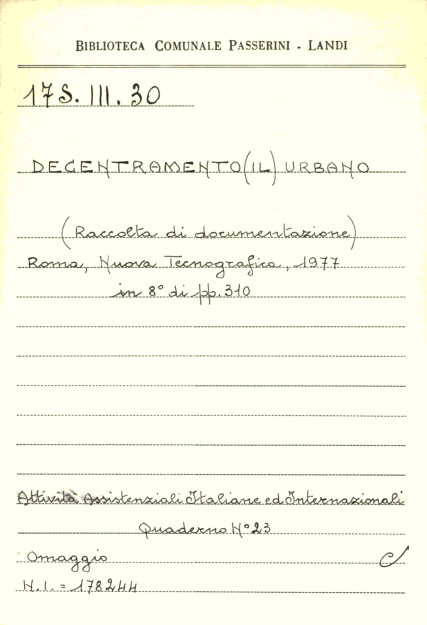 BIBLIOTECA COMUNALE PASSERINI - LANDI
17S. III. 30
DECENTRAMENTO (IL) URBANO
(Raccolta di documentazione)
Roma, Nuova Tecnografica, 1977
in 8° di pp. 310
Attività Assistenziali Italiane ed Internazionali
Quaderno N° 23
Omaggio
N.I. = 178244